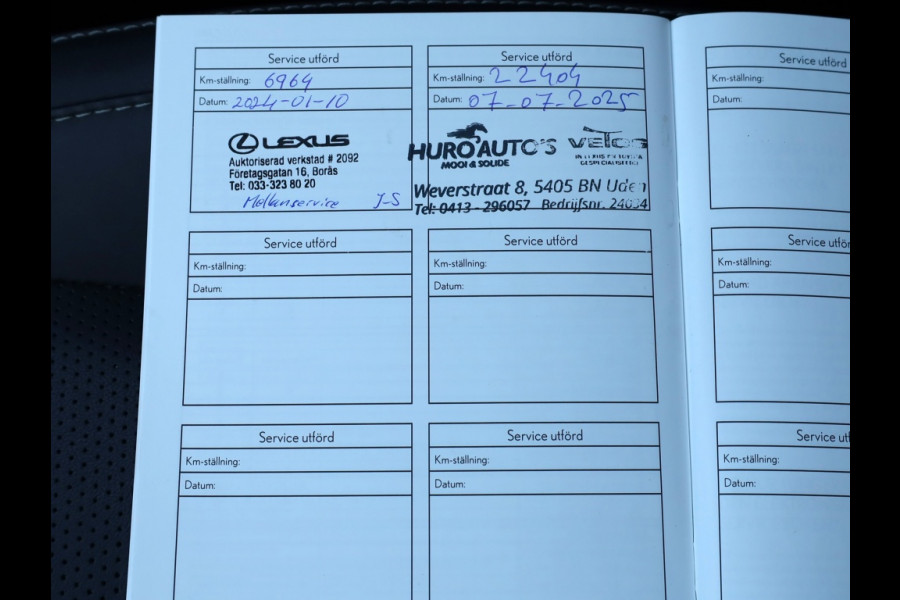 Service utförd
Km-ställning: 6964
Datum: 2024-01-10
LEXUS
Auktoriserad verkstad # 2092
Företagsgatan 16, Borås
Tel: 033-323 80 20
Mellanservice J-S
Service utförd
Km-ställning: 22404
Datum: 07-07-2025
HURO AUTO'S
MOOI & SOLIDE
VETOS
GESPECIALISEERD
Weverstraat 8, 5405 BN Uden
Tel: 0413 - 296057 Bedrijfsnr. 24034
Service utförd
Km-ställning:
Datum:
Service utförd
Km-ställning:
Datum:
Service utförd
Km-ställning:
Datum:
Service utförd
Km-ställning:
Datum:
Service utförd
Km-ställning:
Datum:
Service utför
Km-ställning:
Datum:
Service utf
Km-ställning:
Datum: